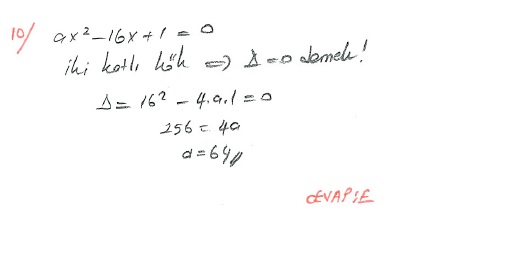 10/ ax² - 16x + 1 = 0
iki katlı kök ⇒ Δ = 0 demek!
Δ = 16² - 4.a.1 = 0
256 = 4a
a = 64//
CEVAP: E